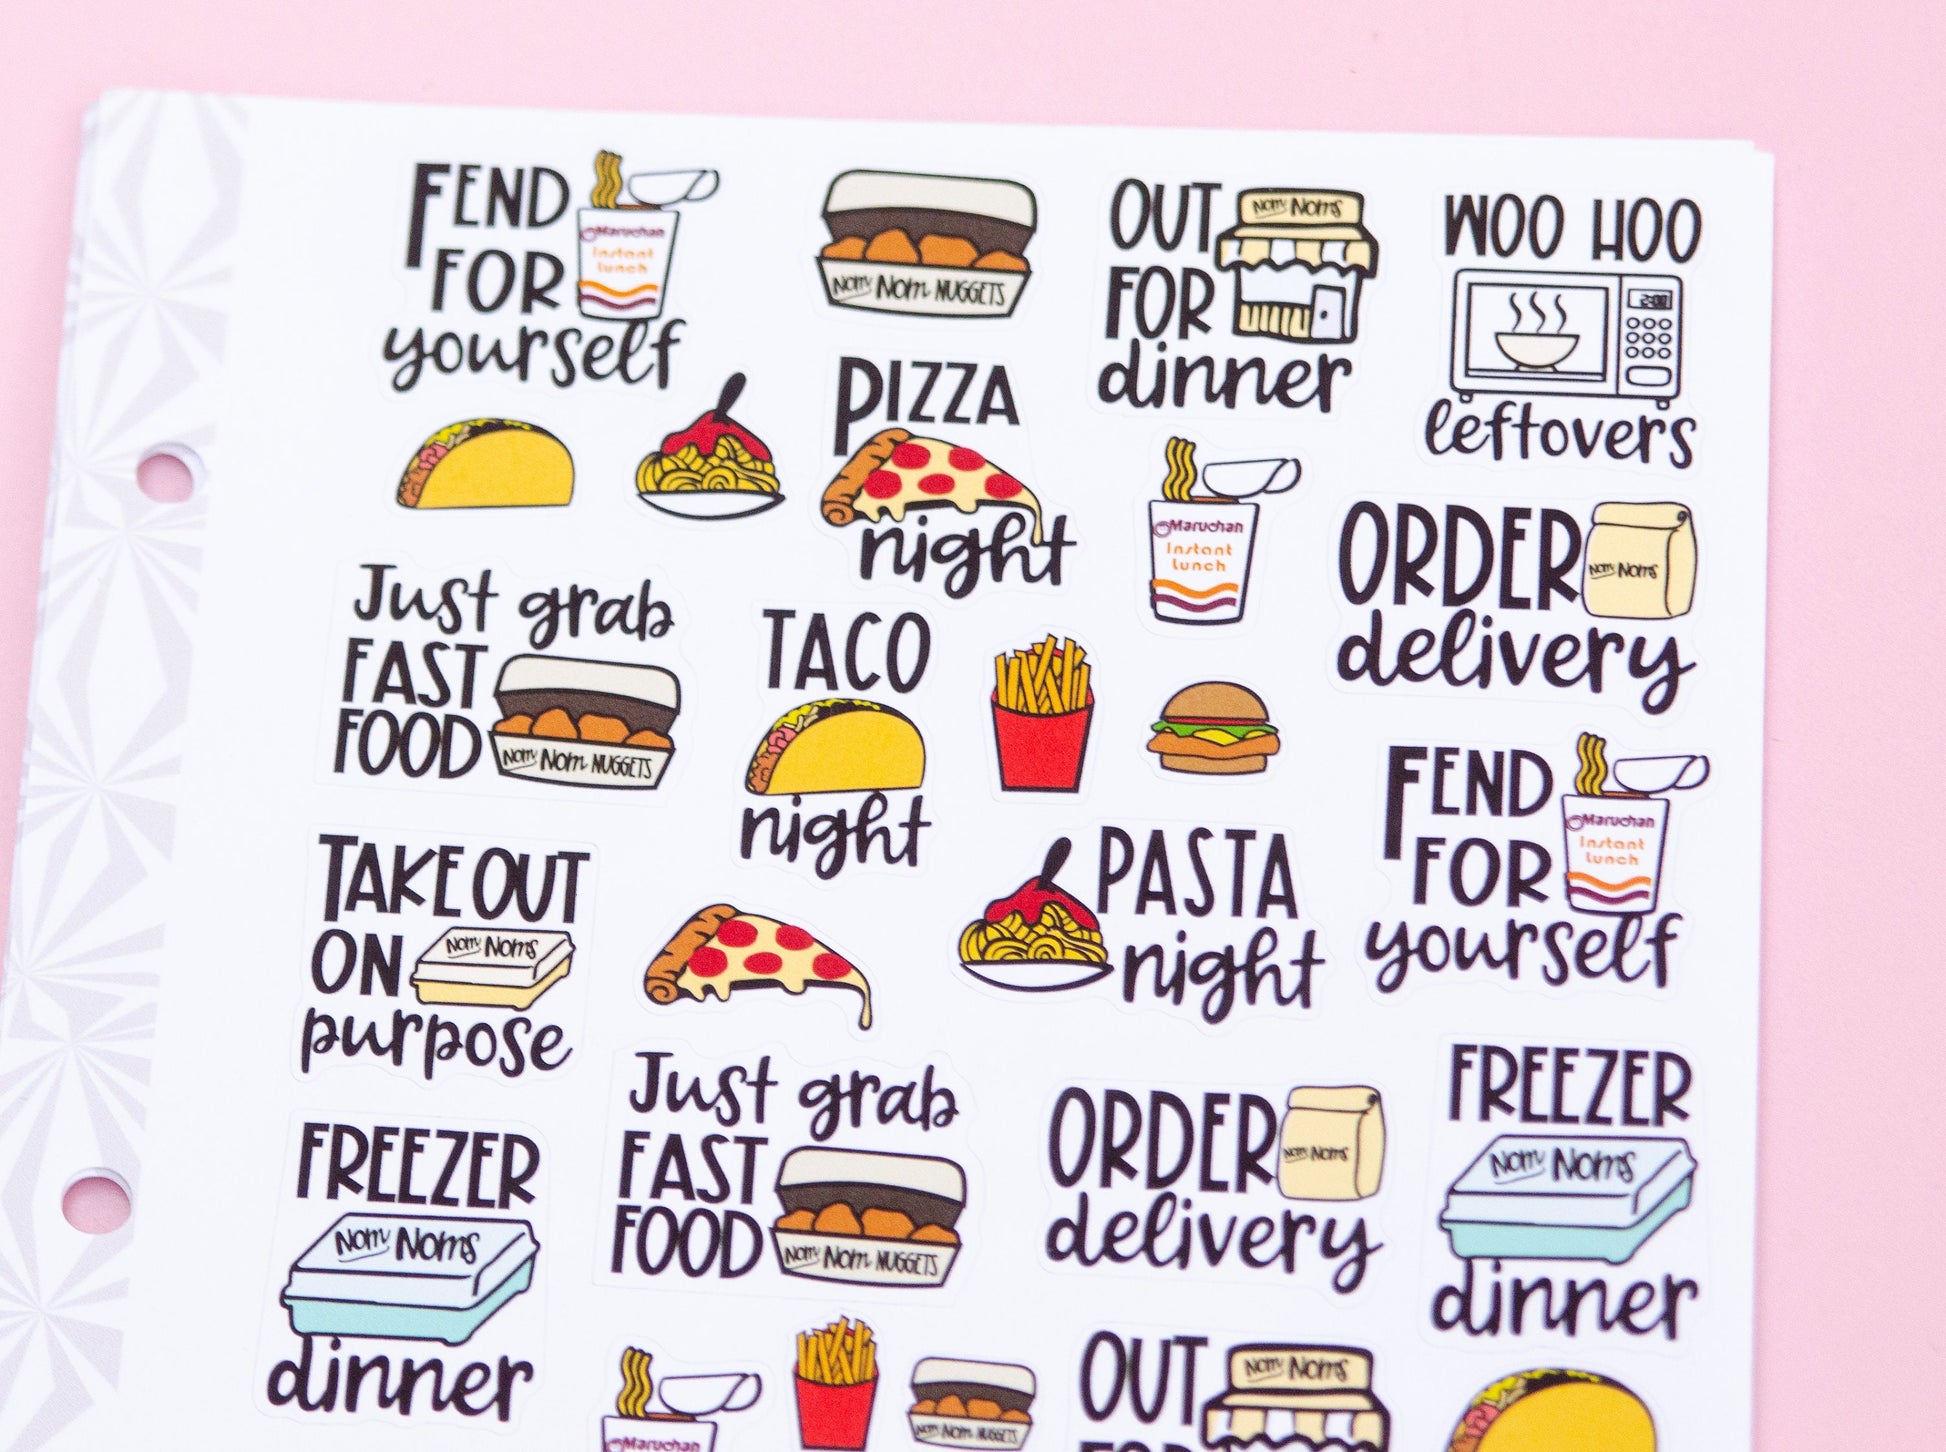 FEND
FOR
yourself
Maruchan
Instant
Lunch
Nom Nom NUGGETS
OUT
FOR
dinner
Nom Noms
WOO HOO
2:00
leftovers
PIZZA
night
Maruchan
Instant
Lunch
ORDER
delivery
Nom Noms
Just grab
FAST
FOOD
Nom Nom NUGGETS
TACO
night
FEND
FOR
yourself
Maruchan
Instant
Lunch
TAKE OUT
ON
purpose
Nom Noms
PASTA
night
Just grab
FAST
FOOD
Nom Nom NUGGETS
ORDER
delivery
Nom Noms
FREEZER
Nom Noms
dinner
FREEZER
Nom Noms
dinner
Maruchan
Nom Nom NUGGETS
OUT
FOR
Nom Noms